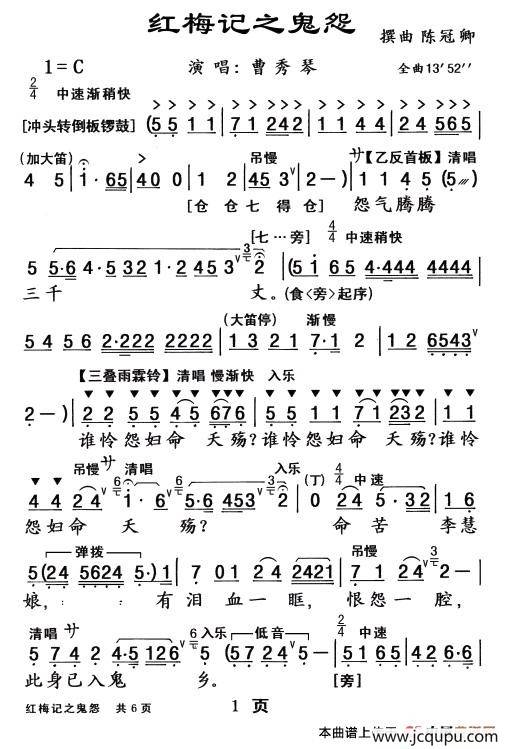 红梅记之鬼怨
撰曲 陈冠卿
1=C 演唱：曹秀琴 全曲13′52″
2/4 中速渐稍快
[冲头转倒板锣鼓] (5 5 1 1 | 7 1 242 | 1 1 4 4 | 2 4 565 |
(加大笛) 吊慢 廾【乙反首板】清唱
4 5 | i· 65 | 4 0 0 | 1 2 | 45 3 | 2 -) | 1 1 4 5 (5
[仓 仓 七 得 仓] 怨气腾腾
[七…旁] 4/4 中速稍快
5 5·6 4·5 32 1·2 45 3 2 | (5 1 6 5 4·444 4444 |
三千 丈。(食<旁>起序)
(大笛停) 渐慢
5 4 5 6 2·222 2222 | 1 3 2 1 7 1 2 | 1 2 6543
【三叠雨霖铃】清唱 慢渐快 入乐
2 -) | 2 2 5 5 4 5 676 | 5 5 1 1 7 1 232 | 1 1
谁怜怨妇命 夭殇？谁怜怨妇命 夭殇？谁怜
吊慢 廾 清唱 入乐 (丁) 4/4 中速
4 4 2 4 i· 6 5·6 453 2 | 0 24 5·32 1 6
怨妇命 夭 殇？ 命 苦 李慧
弹拨 吊慢
5 (24 5624 5·)5 | 7 01 2 24 2421 | 7 1 2 4 5
娘， 有 泪 血 一 眶， 恨 怨 一 腔，
清唱 廾 入乐 低音 2/4 中速
5 7 4 2 4 5712 6· 5 (57 24 | 5 1 7 1 |
此身已入鬼 乡。 [旁]
红梅记之鬼怨 共6页 1 页
本曲谱上
www.jcqupu.com